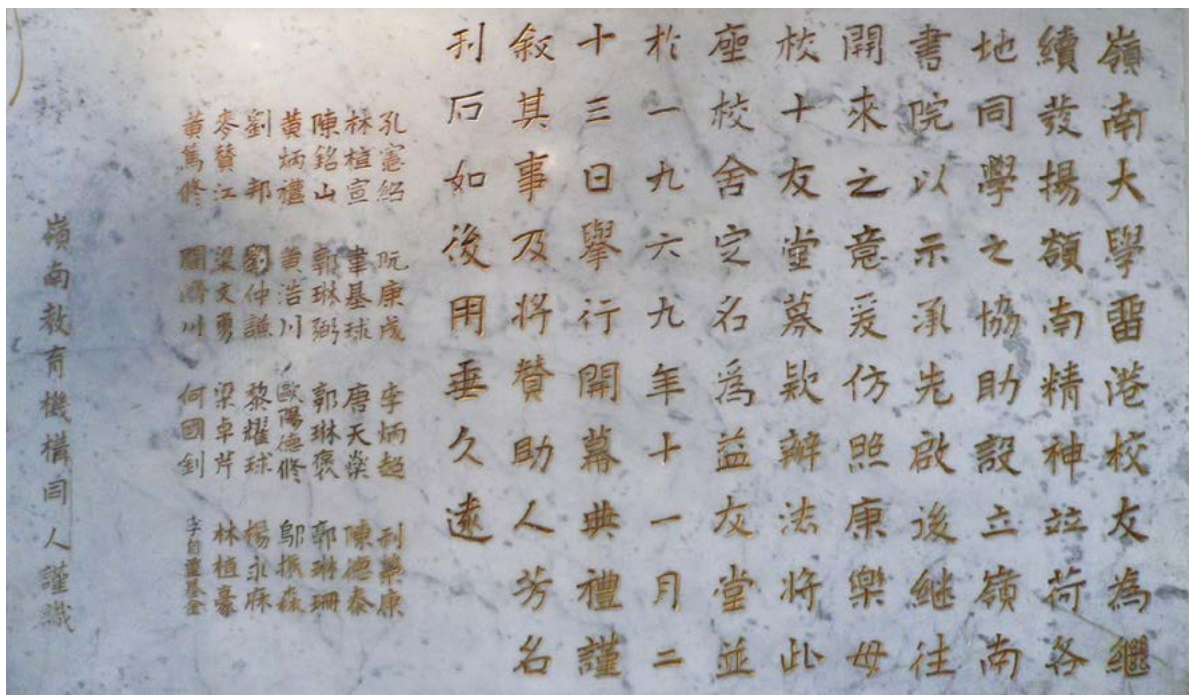 嶺南大學畱港校友為繼
續發揚嶺南精神竝荷各
地同學之協助設立嶺南
書院以示承先啟後继往
開來之意爰仿照康樂母
校十友堂募欵辦法將此
座校舍定名爲益友堂並
於一九六九年十一月二
十三日舉行開幕典禮謹
敘其事及將贊助人芳名
刊石如後用垂久遠
孔憲紹 阮康成 李炳超 利榮康
林植宣 韋基球 唐天燊 陳德泰
陳銘山 郭琳弼 郭琳褒 郭琳珊
黃炳禮 黃浩川 歐陽德修 鄔振森
劉邦 劉仲謙 黎耀球 楊永庥
麥贊江 梁文勇 梁卓芹 林植豪
黃篤修 關濟川 何國釗 李自重基金
嶺南教育機構同人謹識